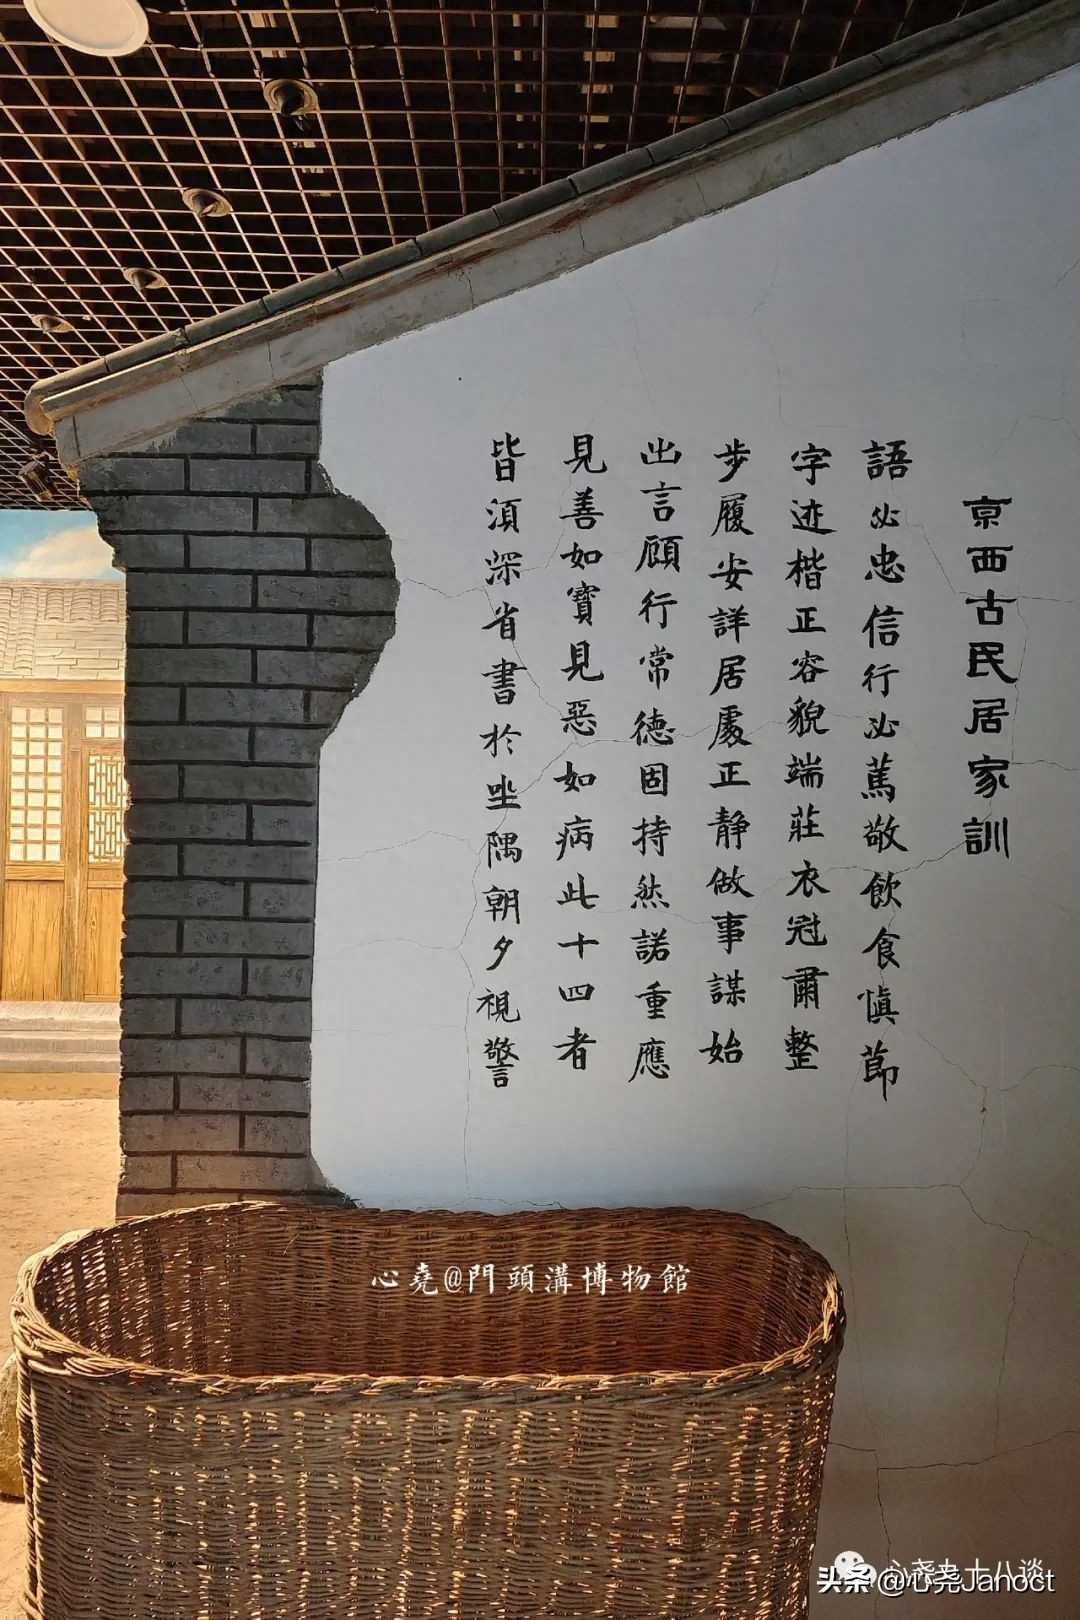 京西古民居家訓
語必忠信行必篤敬飲食慎節
字迹楷正容貌端莊衣冠肅整
步履安詳居處正静做事謀始
出言顧行常德固持然諾重應
見善如寶見惡如病此十四者
皆須深省書於坐隅朝夕視警
心堯@門頭溝博物館
头条@心尧Janoct